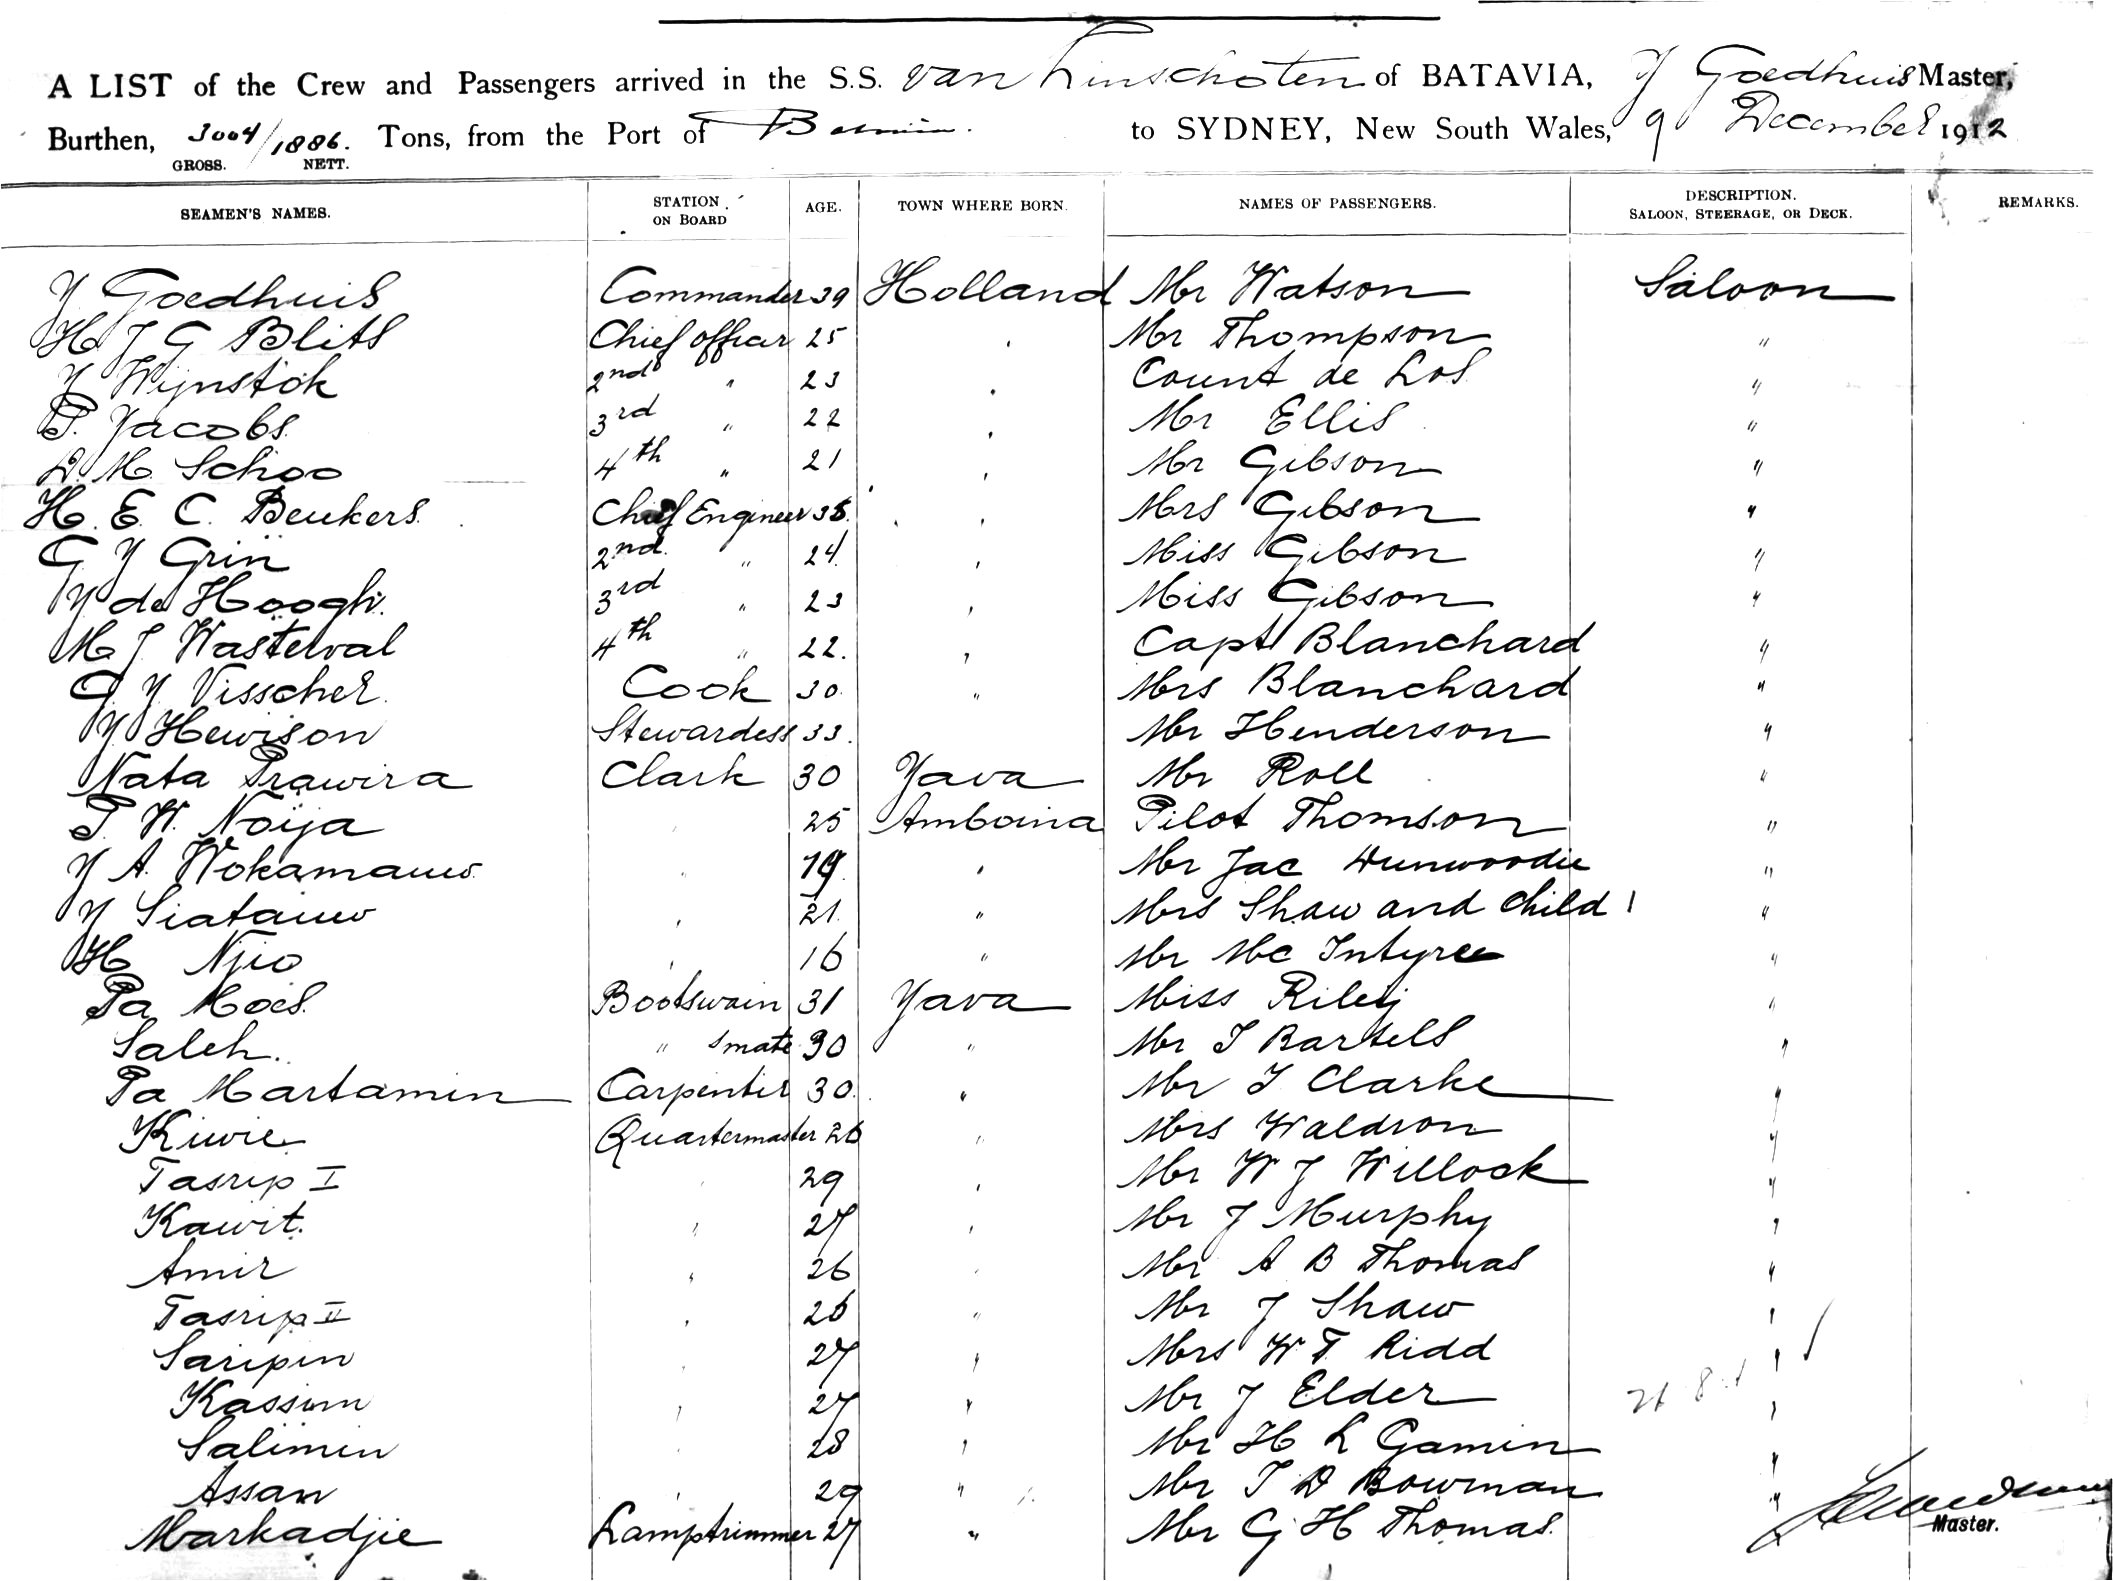 A LIST of the Crew and Passengers arrived in the S.S. van Linschoten of BATAVIA, J Goedhuis Master,
Burthen, 3004/1886. Tons, from the Port of to SYDNEY, New South Wales, 9 December 1912
GROSS. NETT.
SEAMEN'S NAMES. STATION ON BOARD AGE. TOWN WHERE BORN. NAMES OF PASSENGERS. DESCRIPTION. SALOON, STEERAGE, OR DECK. REMARKS.
J Goedhuis Commander 39 Holland Mr Watson Saloon
H J G Blits Chief officer 25 " Mr Thompson "
J Wijnstok 2nd " 23 " Count de Los "
P. Jacobs. 3rd " 22 " Mr Ellis "
D. M. Schoo 4th " 21 " Mr Gibson "
H. E. C. Beukers. Chief Engineer " Mrs Gibson "
G J Grin 2nd. " 24. " Miss Gibson "
J de Hoogh. 3rd " 23 " Miss Gibson "
M J Wasterval 4th " 22. " Capt Blanchard "
G J Visscher. Cook 30. " Mrs Blanchard "
J Hewison Stewardess 33. Mr Henderson "
Nata Prawira Clark 30 Java Mr Roll "
P. W. Noija " 25 Amboina Pilot Thomson "
J A. Wokamauw. " 19. " Mr Jac Dunwoodie "
J Siatauw " 21. " Mrs Shaw and child 1 "
H Njio " 16 " Mr Mc Intyree "
Pa Moes. Bootswain 31 Java Miss Riley "
Saleh. " smate 30 " Mr J Bartels "
Pa Martamin Carpentir 30. " Mr J Clarke "
Kiwie Quartermaster 26 " Mrs Waldron "
Tasrip I " 29 " Mr W J Willock "
Kawit. " 27 " Mr J Murphy "
Amir " 26 " Mr A B Thomas "
Tasrip II " 26 " Mr J Shaw "
Saripin " 27 " Mrs W T. Ridd "
Kassim " 27 " Mr J Elder "
Salimin " 28 " Mr H L Gamin "
Assan " 29 " Mr J D Bowman "
Markadjie Lamptrimmer 27 " Mr G H Thomas.
Master.